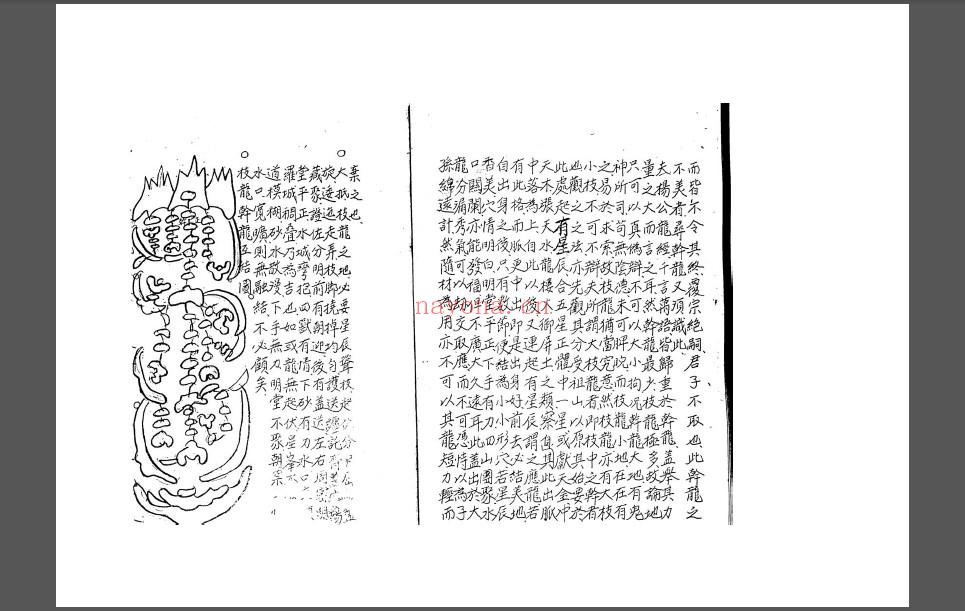 而皆尓令其終覆宗絕嗣君子不取也此幹龍之
不美者尋幹龍又須識此
楊公龍經言皆歸重於幹龍蓋舉其力
量之大而言之耳然幹龍最少枝龍極多故論地
可以真偽辯未可以大小拘況幹龍大地有鬼
神所司無陰德不可睨而枝龍小地在在有
之易於求故當完意然枝龍亦有大枝
小枝不可不辯夫所謂大枝龍者即其中之幹者
也觀之之法亦先觀其分受祖山以原其始要於
此處起有星辰合五星正體一星或獻天金冲
天木漲天水龍樓御屏土之類察其此出脈
中落為上自此以後又連起有星辰謂之應龍若
有此格而脈更中出即是出身好前去必結美地
自出身之後只有數節便結為小小形穴若星辰
秀美穴情明白明堂平正下手有力四山團聚水
口關闌亦能發福但不廣大久遠耳此蓋出於大
龍分漏秀氣可以應而速可憑恃以為子
孫綿遠計然隨材為用亦不可以其龍短力輕而
棄之也
○大抵枝龍之地必要星辰聳枝起
旋逶迤走弄枝脚橈棹均勻護送纏托
藏聚證佐分明前有朝迎後有蓋送左右周密
堂平正水城彎抱四獸有情下砂有力水口
羅城稠叠乃為吉也如或龍無起伏星峯
道模糊砂水散漫下手無力明堂不聚朝
水口寬曠則無融結不必顧矣
○枝龍幹龍互結圖
nayona.cn